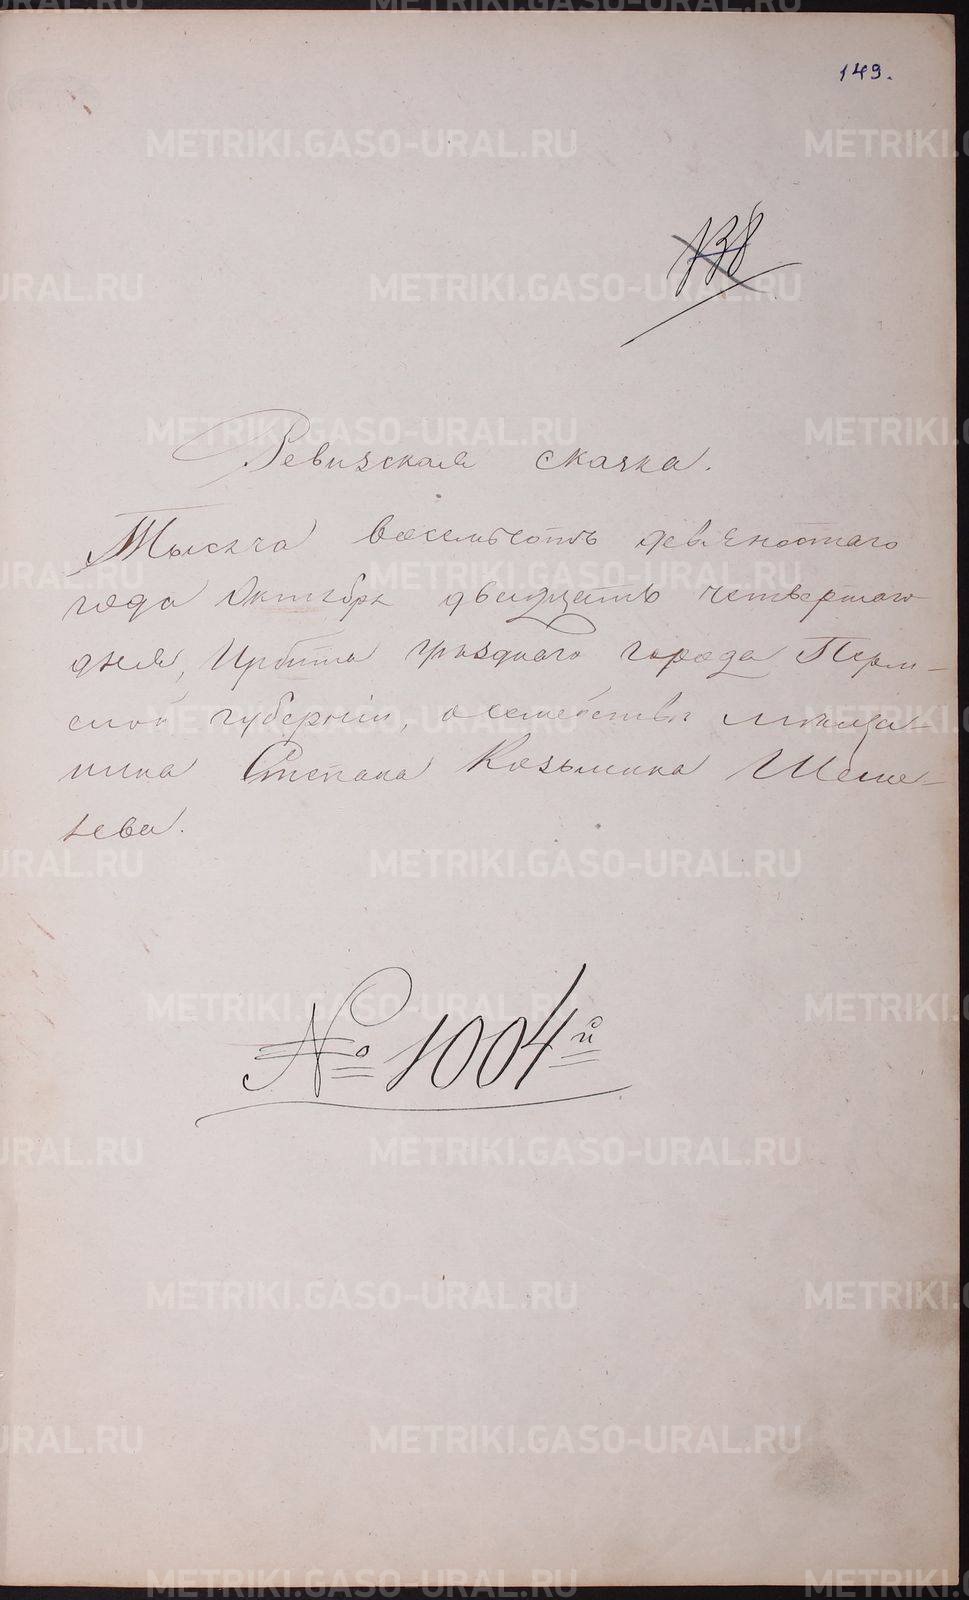 149.
138
Ревизская сказка.
Тысяча восемьсотъ девяностаго
года Октября двадцать четвертаго
дня, Ирбита уѣзднаго города Перм-
ской губерніи, о семействѣ мѣща-
нина Степана Козьмина Шеме-
лева.
№ 1004й
METRIKI.GASO-URAL.RU